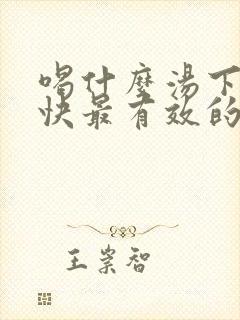 喝什麼湯下
快最有效的
王崇智